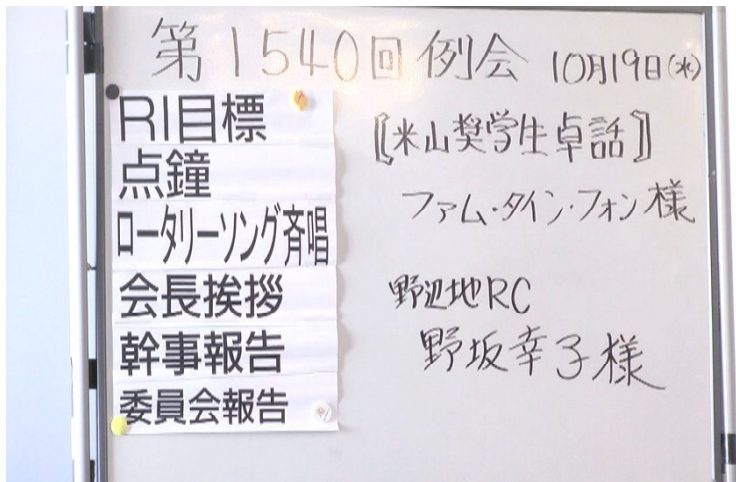 第1540回 例会 10月19日(水)
RI目標
点鐘
ロータリーソング斉唱
会長挨拶
幹事報告
委員会報告
〖米山奨学生卓話〗
ファム・タイン・フォン様
野辺地RC
野坂幸子様